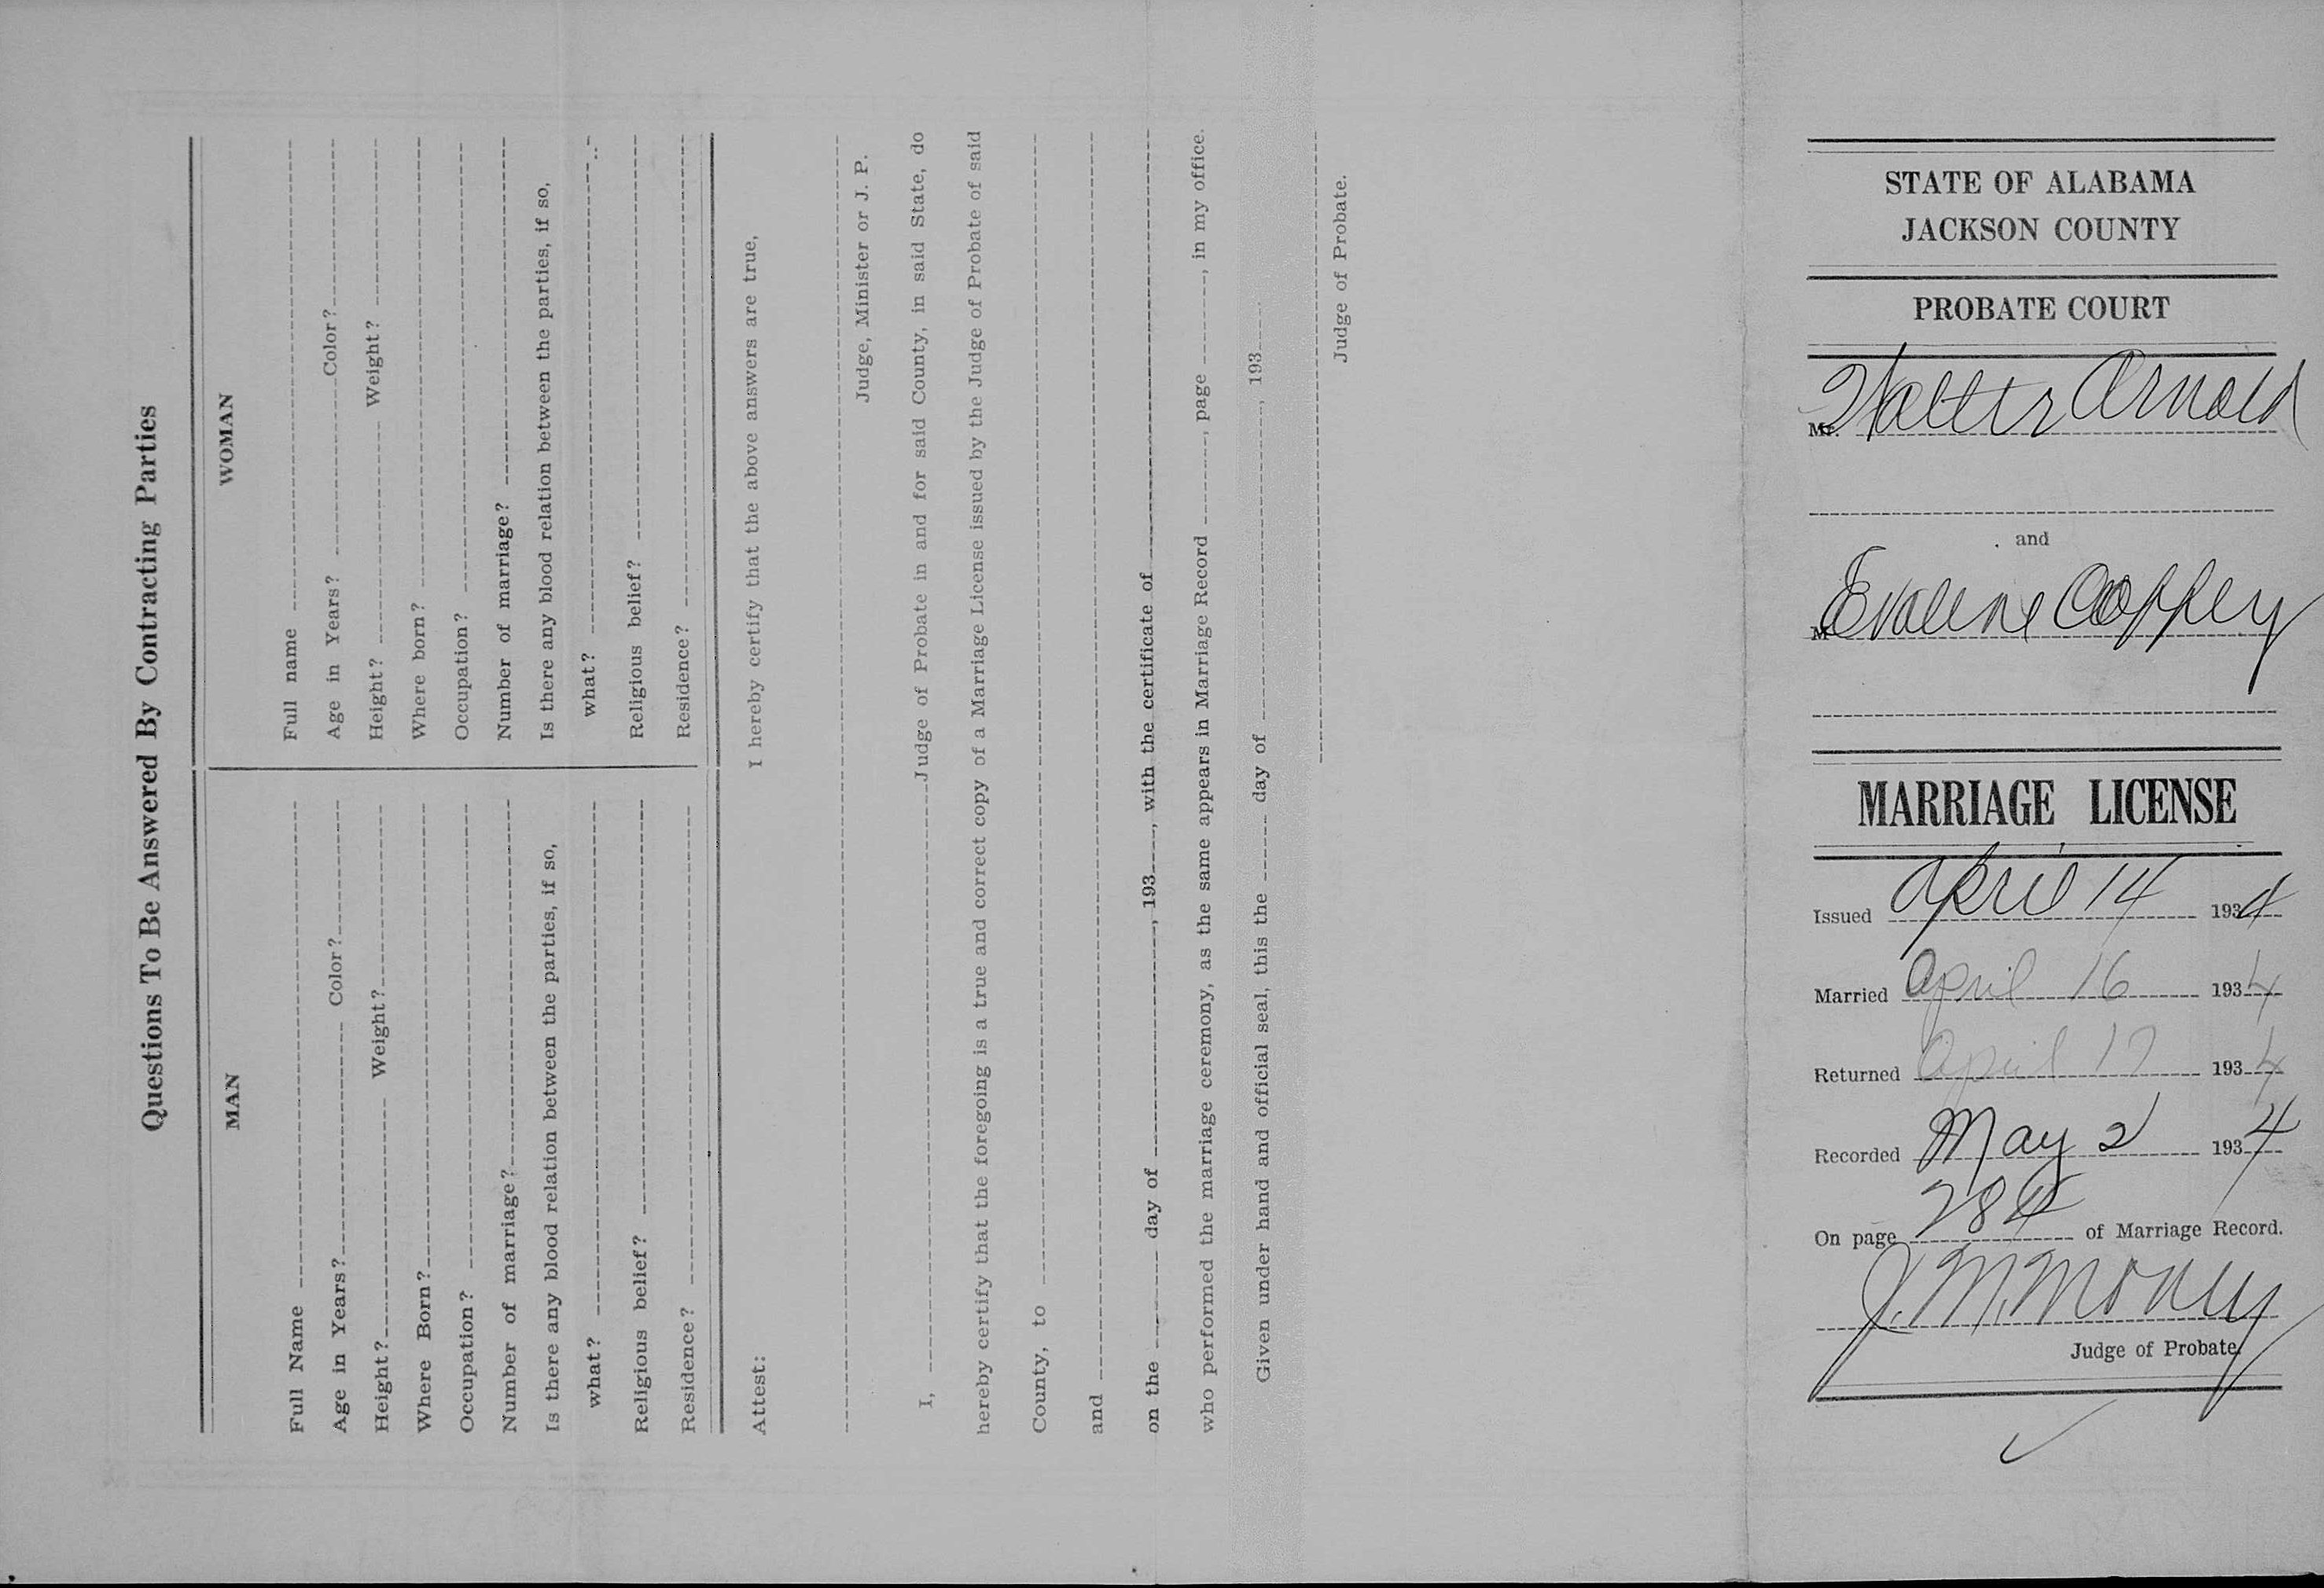 Questions To Be Answered By Contracting Parties
MAN
Full Name
Age in Years? Color?
Height? Weight?
Where Born?
Occupation?
Number of marriage?
Is there any blood relation between the parties, if so,
what?
Religious belief?
Residence?
WOMAN
Full name
Age in Years? Color?
Height? Weight?
Where born?
Occupation?
Number of marriage?
Is there any blood relation between the parties, if so,
what?
Religious belief?
Residence?
I hereby certify that the above answers are true,
Attest:
Judge, Minister or J. P.
I, Judge of Probate in and for said County, in said State, do
hereby certify that the foregoing is a true and correct copy of a Marriage License issued by the Judge of Probate of said
County, to
and
on the day of , 193 , with the certificate of
who performed the marriage ceremony, as the same appears in Marriage Record , page , in my office.
Given under hand and official seal, this the day of , 193
Judge of Probate.
STATE OF ALABAMA
JACKSON COUNTY
PROBATE COURT
Mr. Walter Arnold
and
M Evaline Coffey
MARRIAGE LICENSE
Issued April 14 1934
Married April 16 1934
Returned April 17 1934
Recorded May 2 1934
On page 284 of Marriage Record.
J. M. Money
Judge of Probate.